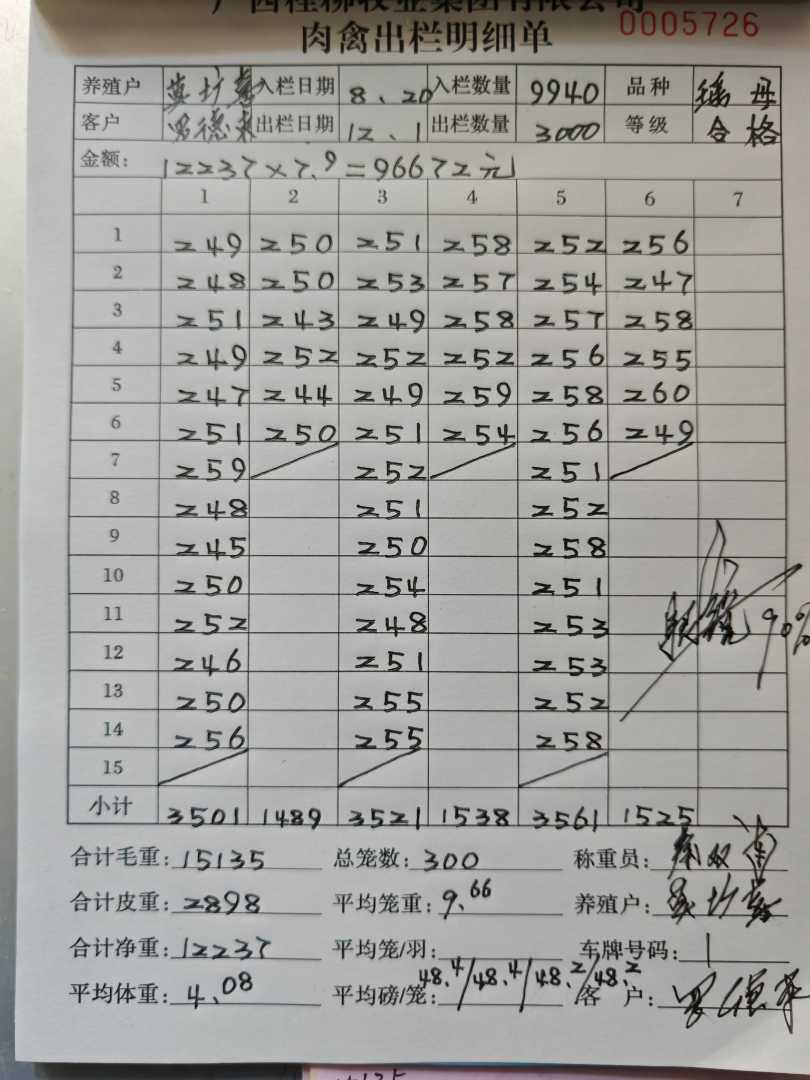 广西桂柳牧业集团有限公司
肉禽出栏明细单 0005726
养殖户 入栏日期 8.20 入栏数量 9940 品种 母
客户 罗德 出栏日期 12.1 出栏数量 3000 等级 合格
金额: 12237×7.9=96672元
1 2 3 4 5 6 7
1 249 250 251 258 252 256
2 248 250 253 257 254 247
3 251 243 249 258 257 258
4 249 252 252 252 256 255
5 247 244 249 259 258 260
6 251 250 251 254 256 249
7 259 252 251
8 248 251 252
9 245 250 258
10 250 254 251
11 252 248 253 90%
12 246 251 253
13 250 255 252
14 256 255 258
15
小计 3501 1489 3521 1538 3561 1525
合计毛重: 15135 总笼数: 300 称重员:
合计皮重: 2898 平均笼重: 9.66 养殖户:
合计净重: 12237 平均笼/羽: 车牌号码: 1
平均体重: 4.08 平均磅/笼: 48.4/48.4/48.2/48.2 客户: 罗德